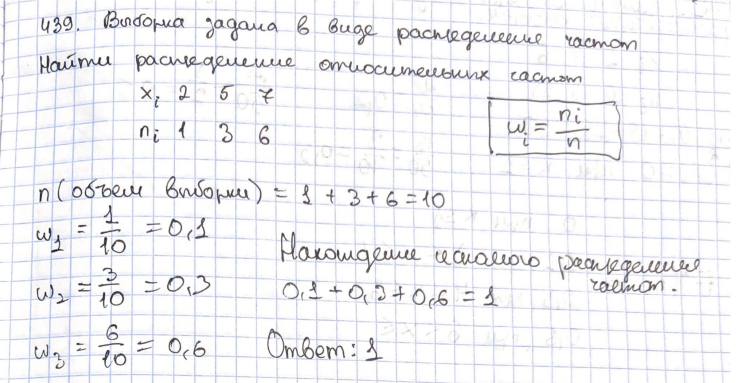 439. Выборка задана в виде распределение частот
Найти распределение относительных частот
xᵢ 2 5 7
nᵢ 1 3 6
wᵢ = nᵢ/n
n (объем выборки) = 1 + 3 + 6 = 10
w₁ = 1/10 = 0,1
w₂ = 3/10 = 0,3
w₃ = 6/10 = 0,6
Нахождение искомого распределения
частот.
0,1 + 0,3 + 0,6 = 1
Ответ: 1